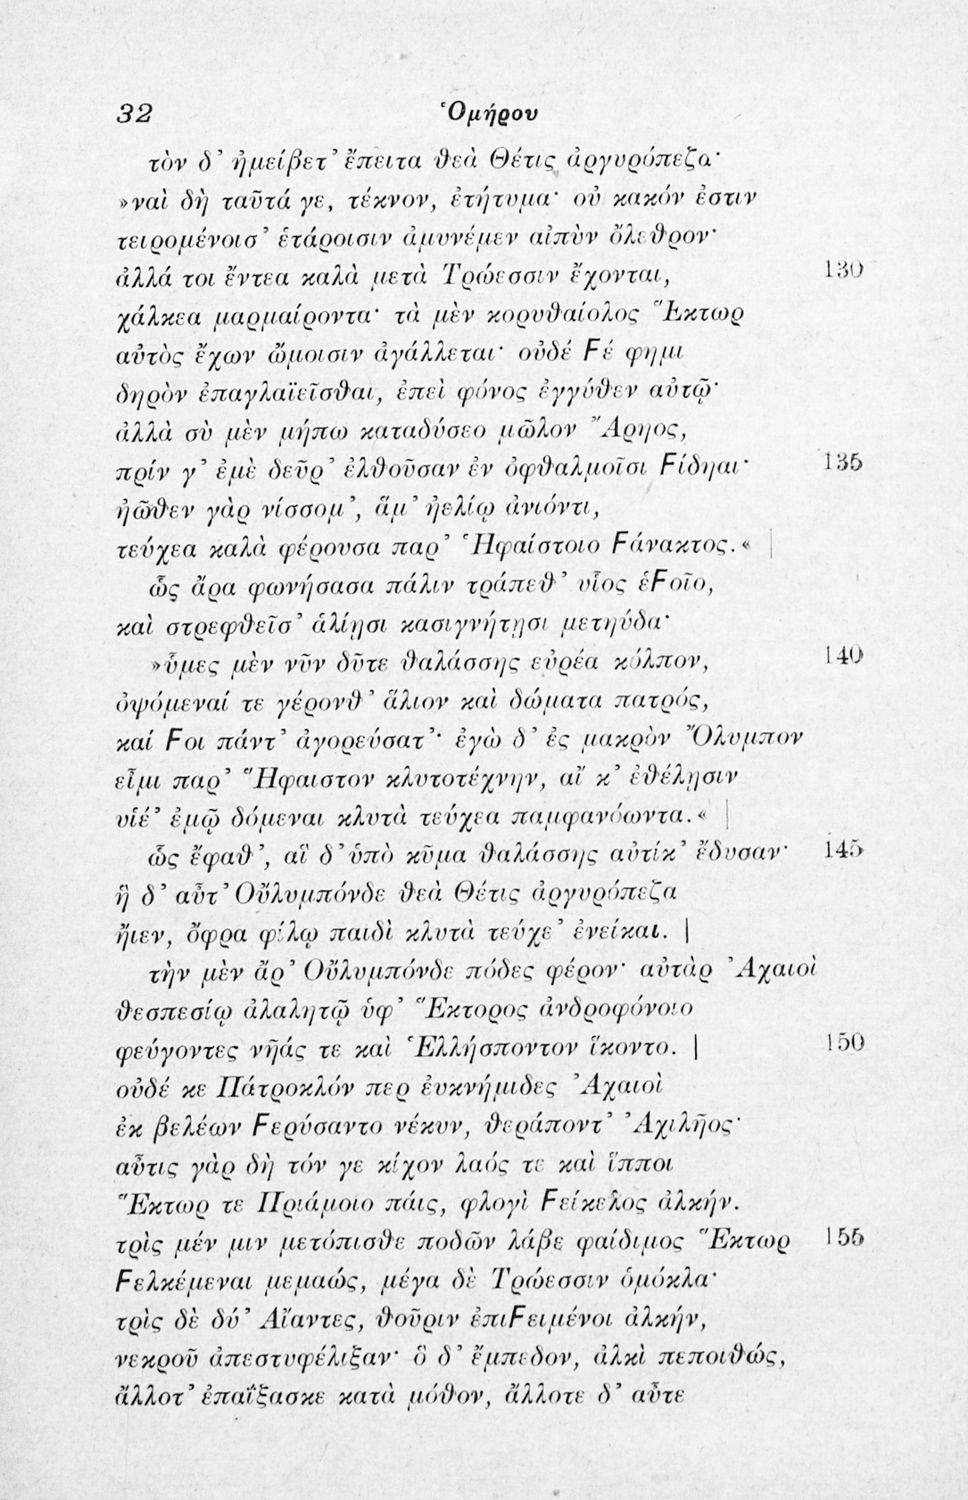 32 Ὁμήρου
τὸν δ᾽ ἠμείβετ᾽ ἔπειτα θεὰ Θέτις ἀργυρόπεζα·
»ναὶ δὴ ταῦτά γε, τέκνον, ἐτήτυμα· οὐ κακόν ἐστιν
τειρομένοισ᾽ ἑτάροισιν ἀμυνέμεν αἰπὺν ὄλεθρον·
ἀλλά τοι ἔντεα καλὰ μετὰ Τρώεσσιν ἔχονται, 130
χάλκεα μαρμαίροντα· τὰ μὲν κορυθαίολος Ἕκτωρ
αὐτὸς ἔχων ὤμοισιν ἀγάλλεται· οὐδέ Ϝέ φημι
δηρὸν ἐπαγλαϊεῖσθαι, ἐπεὶ φόνος ἐγγύθεν αὐτῷ·
ἀλλὰ σὺ μὲν μήπω καταδύσεο μῶλον Ἄρηος,
πρίν γ᾽ ἐμὲ δεῦρ᾽ ἐλθοῦσαν ἐν ὀφθαλμοῖσι Ϝίδηαι· 135
ἠῶθεν γὰρ νίσσομ᾽, ἅμ᾽ ἠελίῳ ἀνιόντι,
τεύχεα καλὰ φέρουσα παρ᾽ Ἡφαίστοιο Ϝάνακτος.« |
ὣς ἄρα φωνήσασα πάλιν τράπεθ᾽ υἷος ἑϜοῖο,
καὶ στρεφθεῖσ᾽ ἁλίῃσι κασιγνήτῃσι μετηύδα·
»ὖμες μὲν νῦν δῦτε θαλάσσης εὐρέα κόλπον, 140
ὀψόμεναί τε γέρονθ᾽ ἅλιον καὶ δώματα πατρός,
καί Ϝοι πάντ᾽ ἀγορεύσατ᾽· ἐγὼ δ᾽ ἐς μακρὸν Ὄλυμπον
εἶμι παρ᾽ Ἥφαιστον κλυτοτέχνην, αἴ κ᾽ ἐθέλῃσιν
υἱέ᾽ ἐμῷ δόμεναι κλυτὰ τεύχεα παμφανόωντα.« |
ὣς ἔφαθ᾽, αἳ δ᾽ ὑπὸ κῦμα θαλάσσης αὐτίκ᾽ ἔδυσαν· 145
ἣ δ᾽ αὖτ᾽ Οὔλυμπόνδε θεὰ Θέτις ἀργυρόπεζα
ἤιεν, ὄφρα φίλῳ παιδὶ κλυτὰ τεύχε᾽ ἐνείκαι. |
τὴν μὲν ἄρ᾽ Οὔλυμπόνδε πόδες φέρον· αὐτὰρ Ἀχαιοὶ
θεσπεσίῳ ἀλαλητῷ ὑφ᾽ Ἕκτορος ἀνδροφόνοιο
φεύγοντες νῆάς τε καὶ Ἑλλήσποντον ἵκοντο. | 150
οὐδέ κε Πάτροκλόν περ ἐυκνήμιδες Ἀχαιοὶ
ἐκ βελέων Ϝερύσαντο νέκυν, θεράποντ᾽ Ἀχιλῆος·
αὖτις γὰρ δὴ τόν γε κίχον λαός τε καὶ ἵπποι
Ἕκτωρ τε Πριάμοιο πάις, φλογὶ Ϝείκελος ἀλκήν.
τρὶς μέν μιν μετόπισθε ποδῶν λάβε φαίδιμος Ἕκτωρ 155
Ϝελκέμεναι μεμαώς, μέγα δὲ Τρώεσσιν ὁμόκλα·
τρὶς δὲ δύ᾽ Αἴαντες, θοῦριν ἐπιϜειμένοι ἀλκήν,
νεκροῦ ἀπεστυφέλιξαν· ὃ δ᾽ ἔμπεδον, ἀλκὶ πεποιθώς,
ἄλλοτ᾽ ἐπαΐξασκε κατὰ μόθον, ἄλλοτε δ᾽ αὖτε